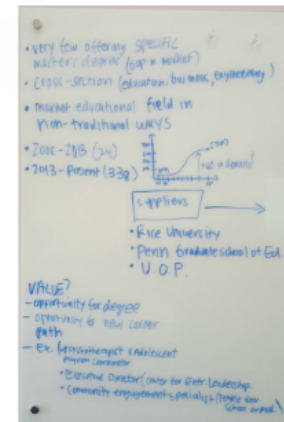 • very few offering specific
master's degree (gap in market)
• cross-section (education, business, engineering)
• market educational field in
non-traditional ways
• 2008-2013 (24)
• 2013-Present (338)
suppliers
• Rice University
• Penn Graduate school of Ed.
• U.O.P.
VALUE?
- opportunity for degree
- opportunity for new career
path
- Ex. Psychotherapist & Adolescent
Program coordinator
• Executive Director, Center for Entr. Leadership
• Community engagement specialist